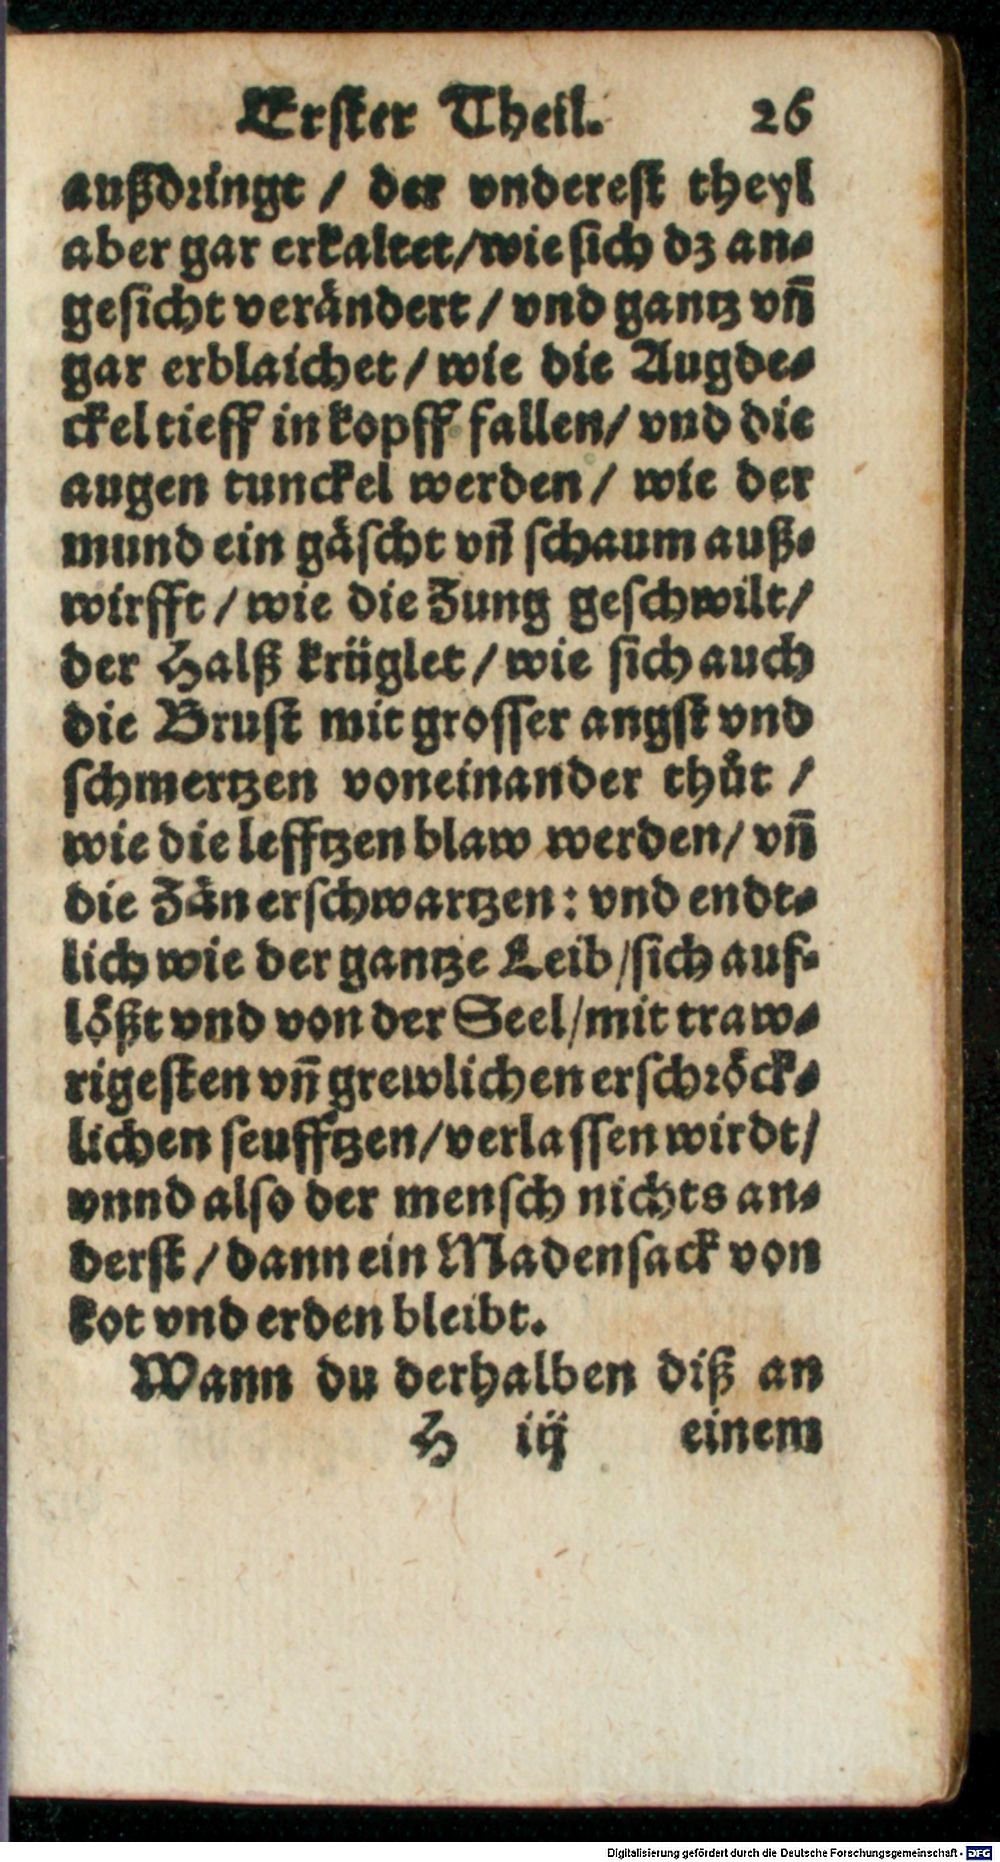 Erster Theil. 26
außdringt / der vnderest theyl
aber gar erkaltet/wie sich dz an-
gesicht verändert / vnd gantz vn̄
gar erblaichet / wie die Augde-
ckel tieff in kopff fallen/ vnd die
augen tunckel werden / wie der
mund ein gäscht vn̄ schaum auß-
wirfft / wie die Zung geschwilt/
der Halß krüglet / wie sich auch
die Brust mit grosser angst vnd
schmertzen voneinander thůt /
wie die lefftzen blaw werden/ vn̄
die Zän erschwartzen: vnd endt-
lich wie der gantze Leib/sich auf-
lößt vnd von der Seel/mit traw-
rigesten vn̄ grewlichen erschröck-
lichen seufftzen/verlassen wirdt/
vnnd also der mensch nichts an-
derst / dann ein Madensack von
kot vnd erden bleibt.
Wann du derhalben diß an
H iij einem
Digitalisierung gefördert durch die Deutsche Forschungsgemeinschaft - DFG